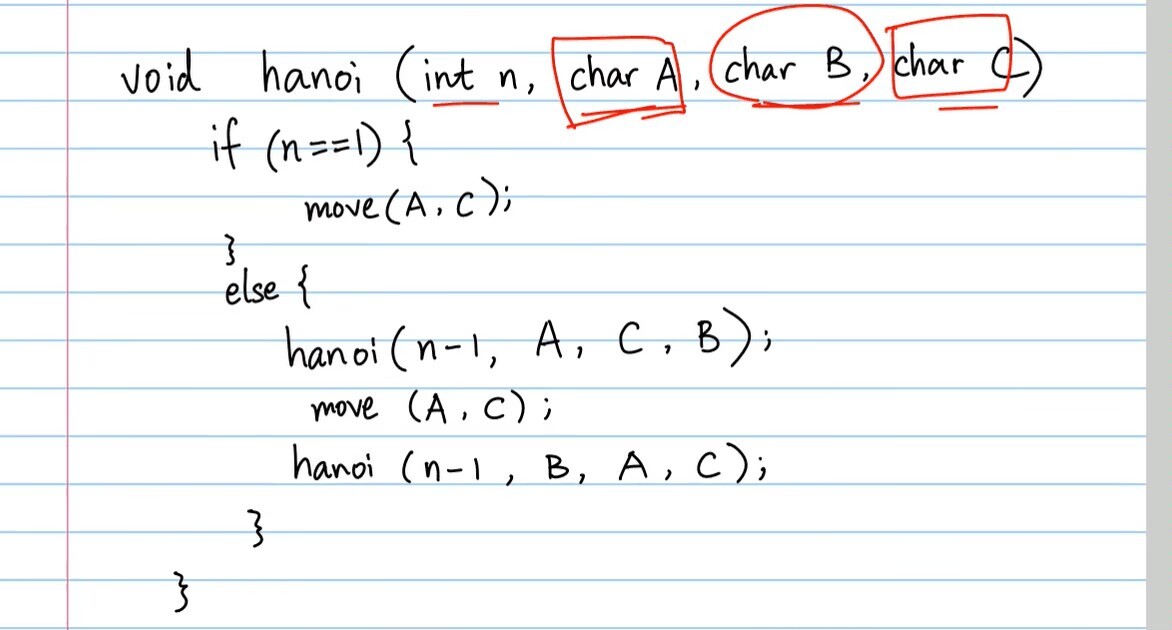 void hanoi (int n, char A, char B, char C)
if (n==1) {
move(A, C);
}
else {
hanoi(n-1, A, C, B);
move (A, C);
hanoi (n-1, B, A, C);
}
}